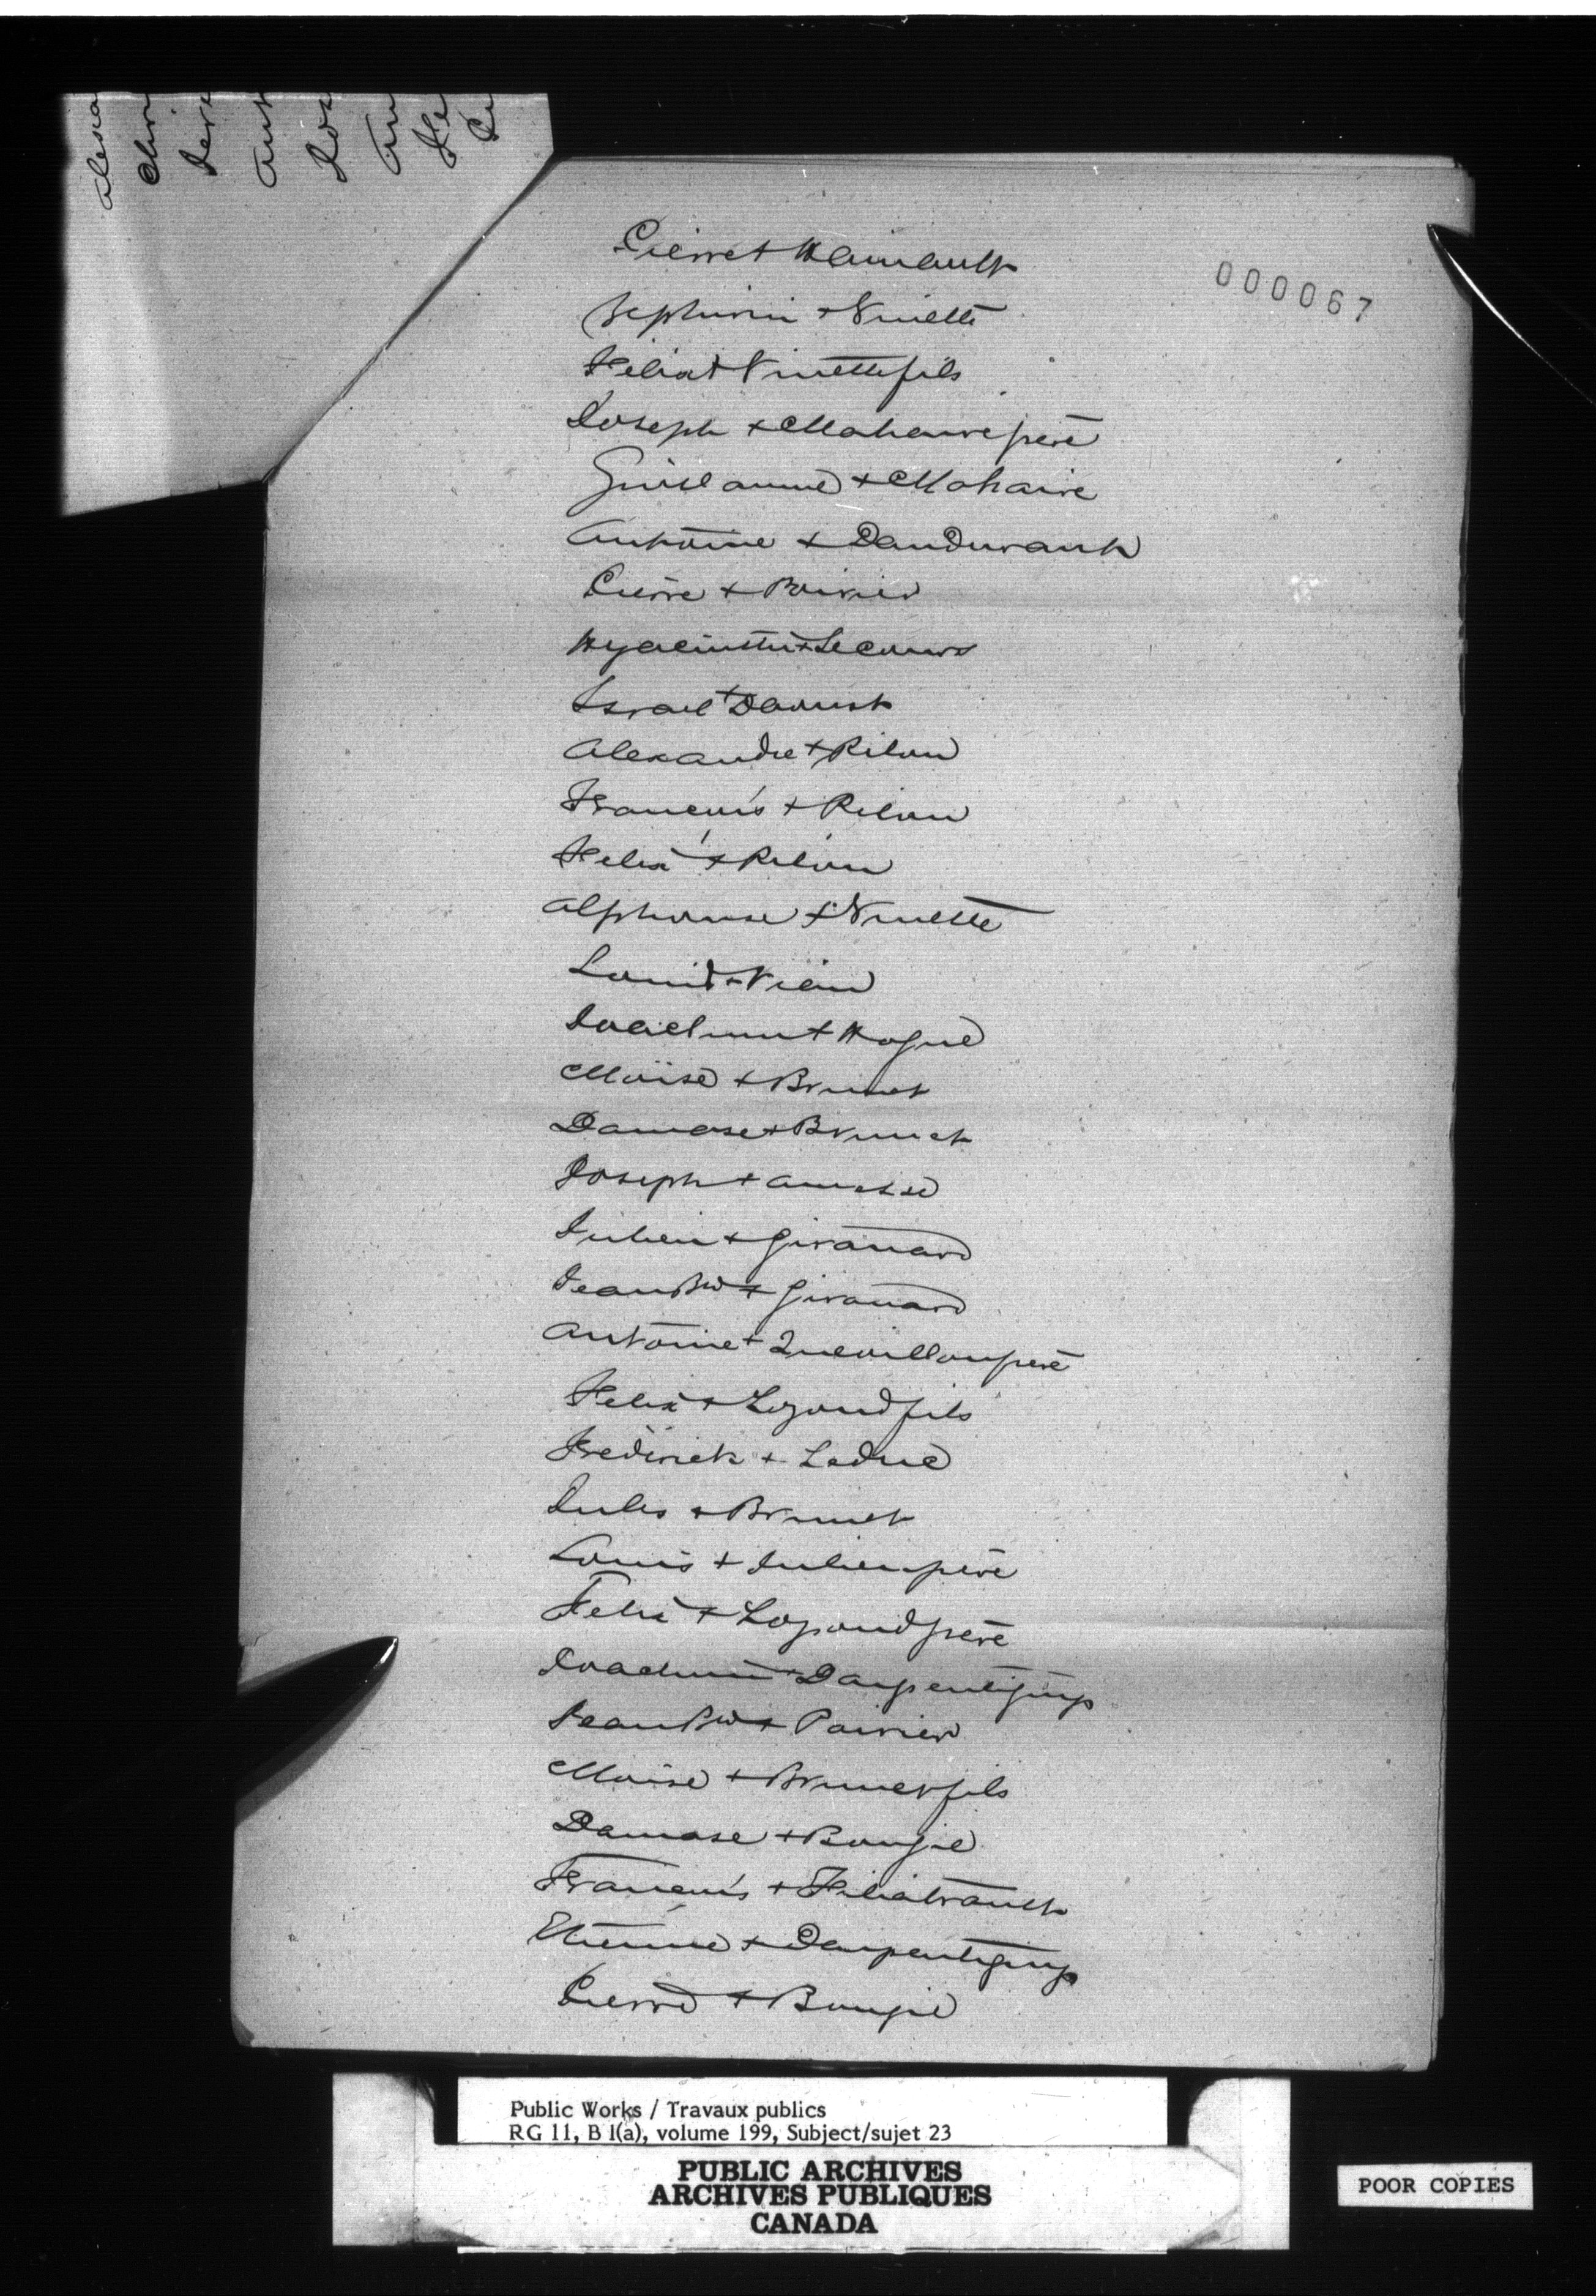 Alexa
Chri
Jere
Ant
Jos
An
Fe
Pi
000067
Pierre + Hainault
Zephirin + Ninette
Félix + Ninette fils
Joseph + Mahaire père
Guillaume + Mahaire
Antoine + Dandurant
Pierre + Poirier
Hyacinthe + Lecours
Israel + Daoust
Alexandre + Pilon
François + Pilon
Félix + Pilon
Alphonse + Ninette
Louis + Vien
Joachim + Hogue
Moïse + Brunet
Damase + Brunet
Joseph +
Julien + Girouard
Jean Bte + Girouard
Antoine + Quevillon père
Félix + Legond fils
Frederick + Leduc
Jules + Brunet
Louis + Julien père
Félix + Legond père
Joachim + Darpentigny
Jean Bte + Poirier
Moise + Brunet fils
Damase + Bougie
François + Filiatrault
Etienne + Darpentigny
Pierre + Bougie
Public Works / Travaux publics
RG 11, B 1(a), volume 199, Subject/sujet 23
PUBLIC ARCHIVES
ARCHIVES PUBLIQUES
CANADA
POOR COPIES